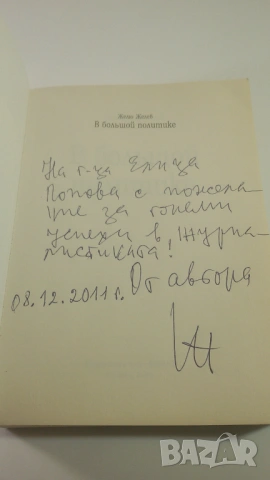 Жельо Желев
В большой политике
На г-ца Елица
Попова с пожела
ние за големи
успехи в журна-
листиката!
От автора
08.12.2011 г.
BAZAR
.bg